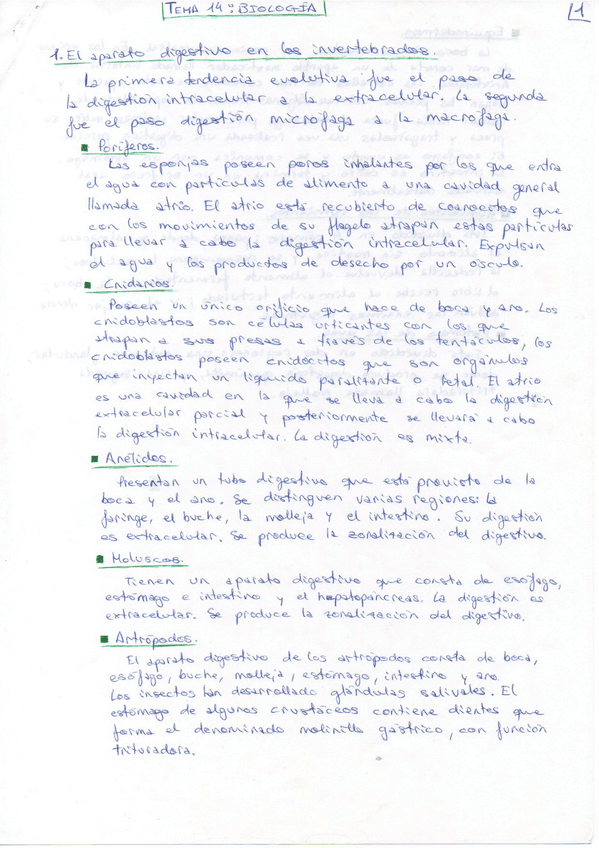 TEMA 14: BIOLOGÍA
1
1. El aparato digestivo en los invertebrados.
La primera tendencia evolutiva fue el paso de
la digestión intracelular a la extracelular. La segunda
fue el paso digestión micrófaga a la macrófaga.
Poríferos.
Las esponjas poseen poros inhalantes por los que entra
el agua con partículas de alimento a una cavidad general
llamada atrio. El atrio está recubierto de coanocitos que
con los movimientos de su flagelo atrapan estas partículas
para llevar a cabo la digestión intracelular. Expulsan
el agua y los productos de desecho por un ósculo.
Cnidarios
Poseen un único orificio que hace de boca y ano. Los
cnidoblastos son células urticantes con los que
atrapan a sus presas a través de los tentáculos, los
cnidoblastos poseen cnidocitos que son orgánulos
que inyectan un líquido paralizante o letal. El atrio
es una cavidad en la que se lleva a cabo la digestión
extracelular parcial y posteriormente se llevará a cabo
la digestión intracelular. La digestión es mixta.
Anélidos.
Presentan un tubo digestivo que está provisto de la
boca y el ano. Se distinguen varias regiones: la
faringe, el buche, la molleja y el intestino. Su digestión
es extracelular. Se produce la zonalización del digestivo.
Moluscos.
Tienen un aparato digestivo que consta de esófago,
estómago e intestino y el hepatopáncreas. La digestión es
extracelular. Se produce la zonalización del digestivo.
Artrópodos.
El aparato digestivo de los artrópodos consta de boca,
esófago, buche, molleja, estómago, intestino y ano.
Los insectos han desarrollado glándulas salivales. El
estómago de algunos crustáceos contiene dientes que
forma el denominado molinillo gástrico, con función
trituradora.